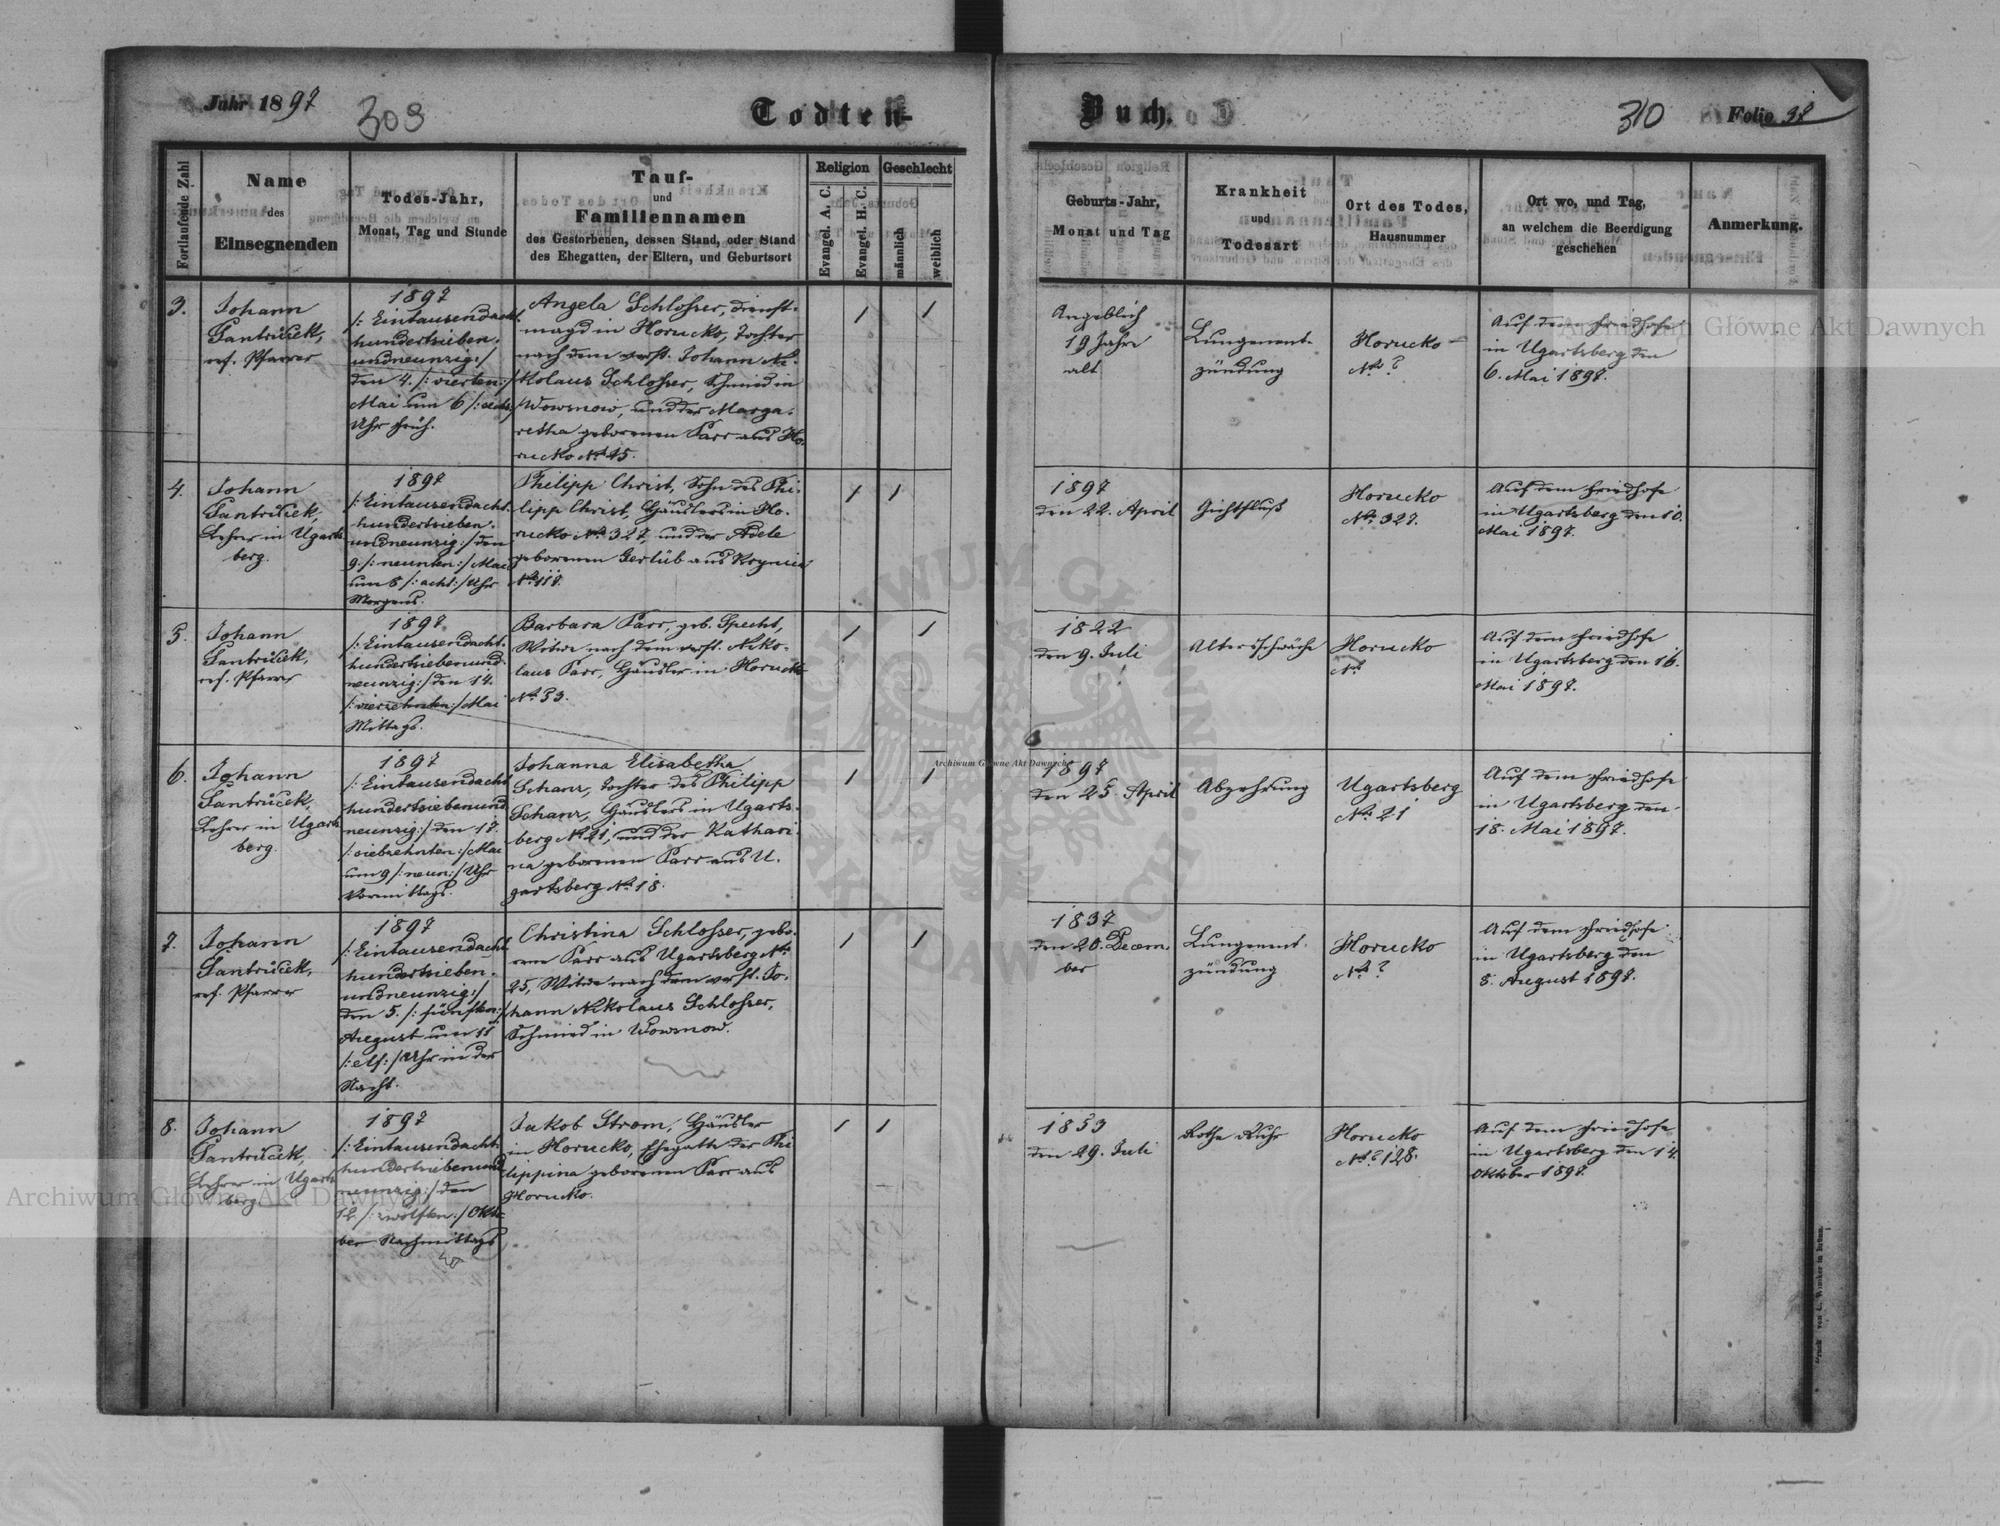 Jahr 1897
309
Todten-
Buch.
310
Folio 98
Fortlaufende Zahl
Name
des
Einsegnenden
Todes-Jahr,
Monat, Tag und Stunde
Tauf-
und
Familiennamen
des Gestorbenen, dessen Stand, oder Stand
des Ehegatten, der Eltern, und Geburtsort
Religion
Evangel. A. C.
Evangel. H. C.
Geschlecht
männlich
weiblich
Geburts-Jahr,
Monat und Tag
Krankheit
und
Todesart
Ort des Todes,
Hausnummer
Ort wo, und Tag,
an welchem die Beerdigung
geschehen
Anmerkung.
3.
Johann
Jantrůcek,
ref. Pfarrer
1897
/: Eintausendacht
hundertsieben-
undneunzig:/
den 4. /: vierten:/
Mai um 6 /: sechs:/
Uhr früh.
Angela Schlosser, Dienst-
magd in Horucko, Tochter
nach dem verst. Johann Ni-
kolaus Schlosser, Schmied in
Wowsnow, und der Marga-
retha geborenen Parr aus Ho-
rucko No 45.
/
/
Angeblich
19 Jahre
alt
Lungenent-
zündung
Horucko
No ?
Auf dem Friedhofe
in Ugartsberg den
6. Mai 1897.
4.
Johann
Jantrůcek,
Lehrer in Ugarts
berg.
1897
/: Eintausendacht
hundertsieben-
undneunzig:/ den
9. /: neunten:/ Mai
um 8 /: acht:/ Uhr
Morgens.
Philipp Christ, Sohn des Phi-
lipp Christ, Häuslers in Ho-
rucko No 327, und der Adele
geborenen Gerlüb aus Krynica
No 118.
/
/
1897
den 22. April
Gichtfluß
Horucko
No 327.
Auf dem Friedhofe
in Ugartsberg den 10.
Mai 1897.
5.
Johann
Jantrůcek,
ref. Pfarrer
1897
/: Eintausendacht-
hundertsiebenund-
neunzig:/ den 14.
/: vierzehnten:/ Mai
Mittags.
Barbara Parr, geb. Specht,
Witwe nach dem verst. Niko-
laus Parr, Häusler in Horucko
No 53.
/
/
1822
den 9. Juli
Altersschwäche
Horucko
No
Auf dem Friedhofe
in Ugartsberg den 16.
Mai 1897.
6.
Johann
Jantrůcek,
Lehrer in Ugarts
berg.
1897
/: Eintausendacht
hundertsiebenund
neunzig:/ den 17.
/: siebzehnten:/ Mai
um 9 /: neun:/ Uhr
Vormittags.
Johanna Elisabetha
Schanz, Tochter des Philipp
Schanz, Häuslers in Ugarts-
berg No 21, und der Kathari-
na geborenen Parr aus U-
gartsberg No 18.
/
/
1897
den 25. April
Abzehrung
Ugartsberg
No 21
Auf dem Friedhofe
in Ugartsberg den
18. Mai 1897.
7.
Johann
Jantrůcek,
ref. Pfarrer
1897
/: Eintausendacht
hundertsieben-
undneunzig:/
den 5. /: fünften:/
August um 11
/: elf:/ Uhr in der
Nacht.
Christina Schlosser, gebo-
rene Parr aus Ugartsberg No
25, Witwe nach dem verst. Jo-
hann Nikolaus Schlosser,
Schmied in Wowsnow.
/
/
1837
den 20. Decem-
ber
Lungenent-
zündung
Horucko
No ?
Auf dem Friedhofe
in Ugartsberg den
8. August 1897.
8.
Johann
Jantrůcek,
Lehrer in Ugarts
berg
1897
/: Eintausendacht-
hundertsiebenund
neunzig:/ den
12. /: zwölften:/ Okto-
ber Nachmittags
Jakob Strom, Häusler
in Horucko, Ehegatte der Phi
lippina geborenen Parr aus
Horucko.
/
/
1853
den 29. Juli
Rothe Ruhr
Horucko
No 128.
Auf dem Friedhofe
in Ugartsberg den 14.
Oktober 1897.
Archiwum Główne Akt Dawnych
Archiwum Główne Akt Dawnych
Archiwum Główne Akt Dawnych
ARCHIWUM GŁÓWNE AKT DAWNYCH
Druck von C. Winiker in Brünn.